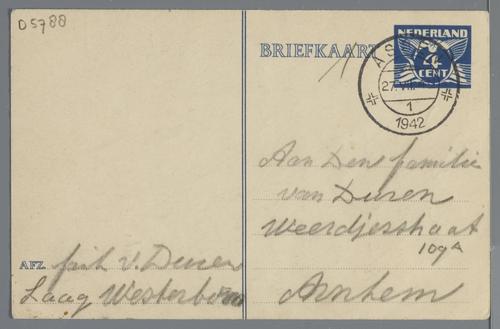 D5788
BRIEFKAART
NEDERLAND
4
CENT
27.VII
1
1942
Aan Den familie
van Duren
Weerdjesstraat
109A
Arnhem
AFZ. v. Duren
Laag Westerbork